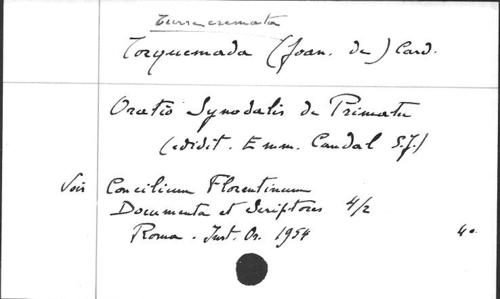 Turrecremata
Torquemada (Joan. de) Card.
Oratio Synodalis de Primatu
(edidit. Emm. Candal S.J.)
Voir Concilium Florentinum
Documenta et Scriptores 4/2
Roma. Inst. Or. 1954 4°